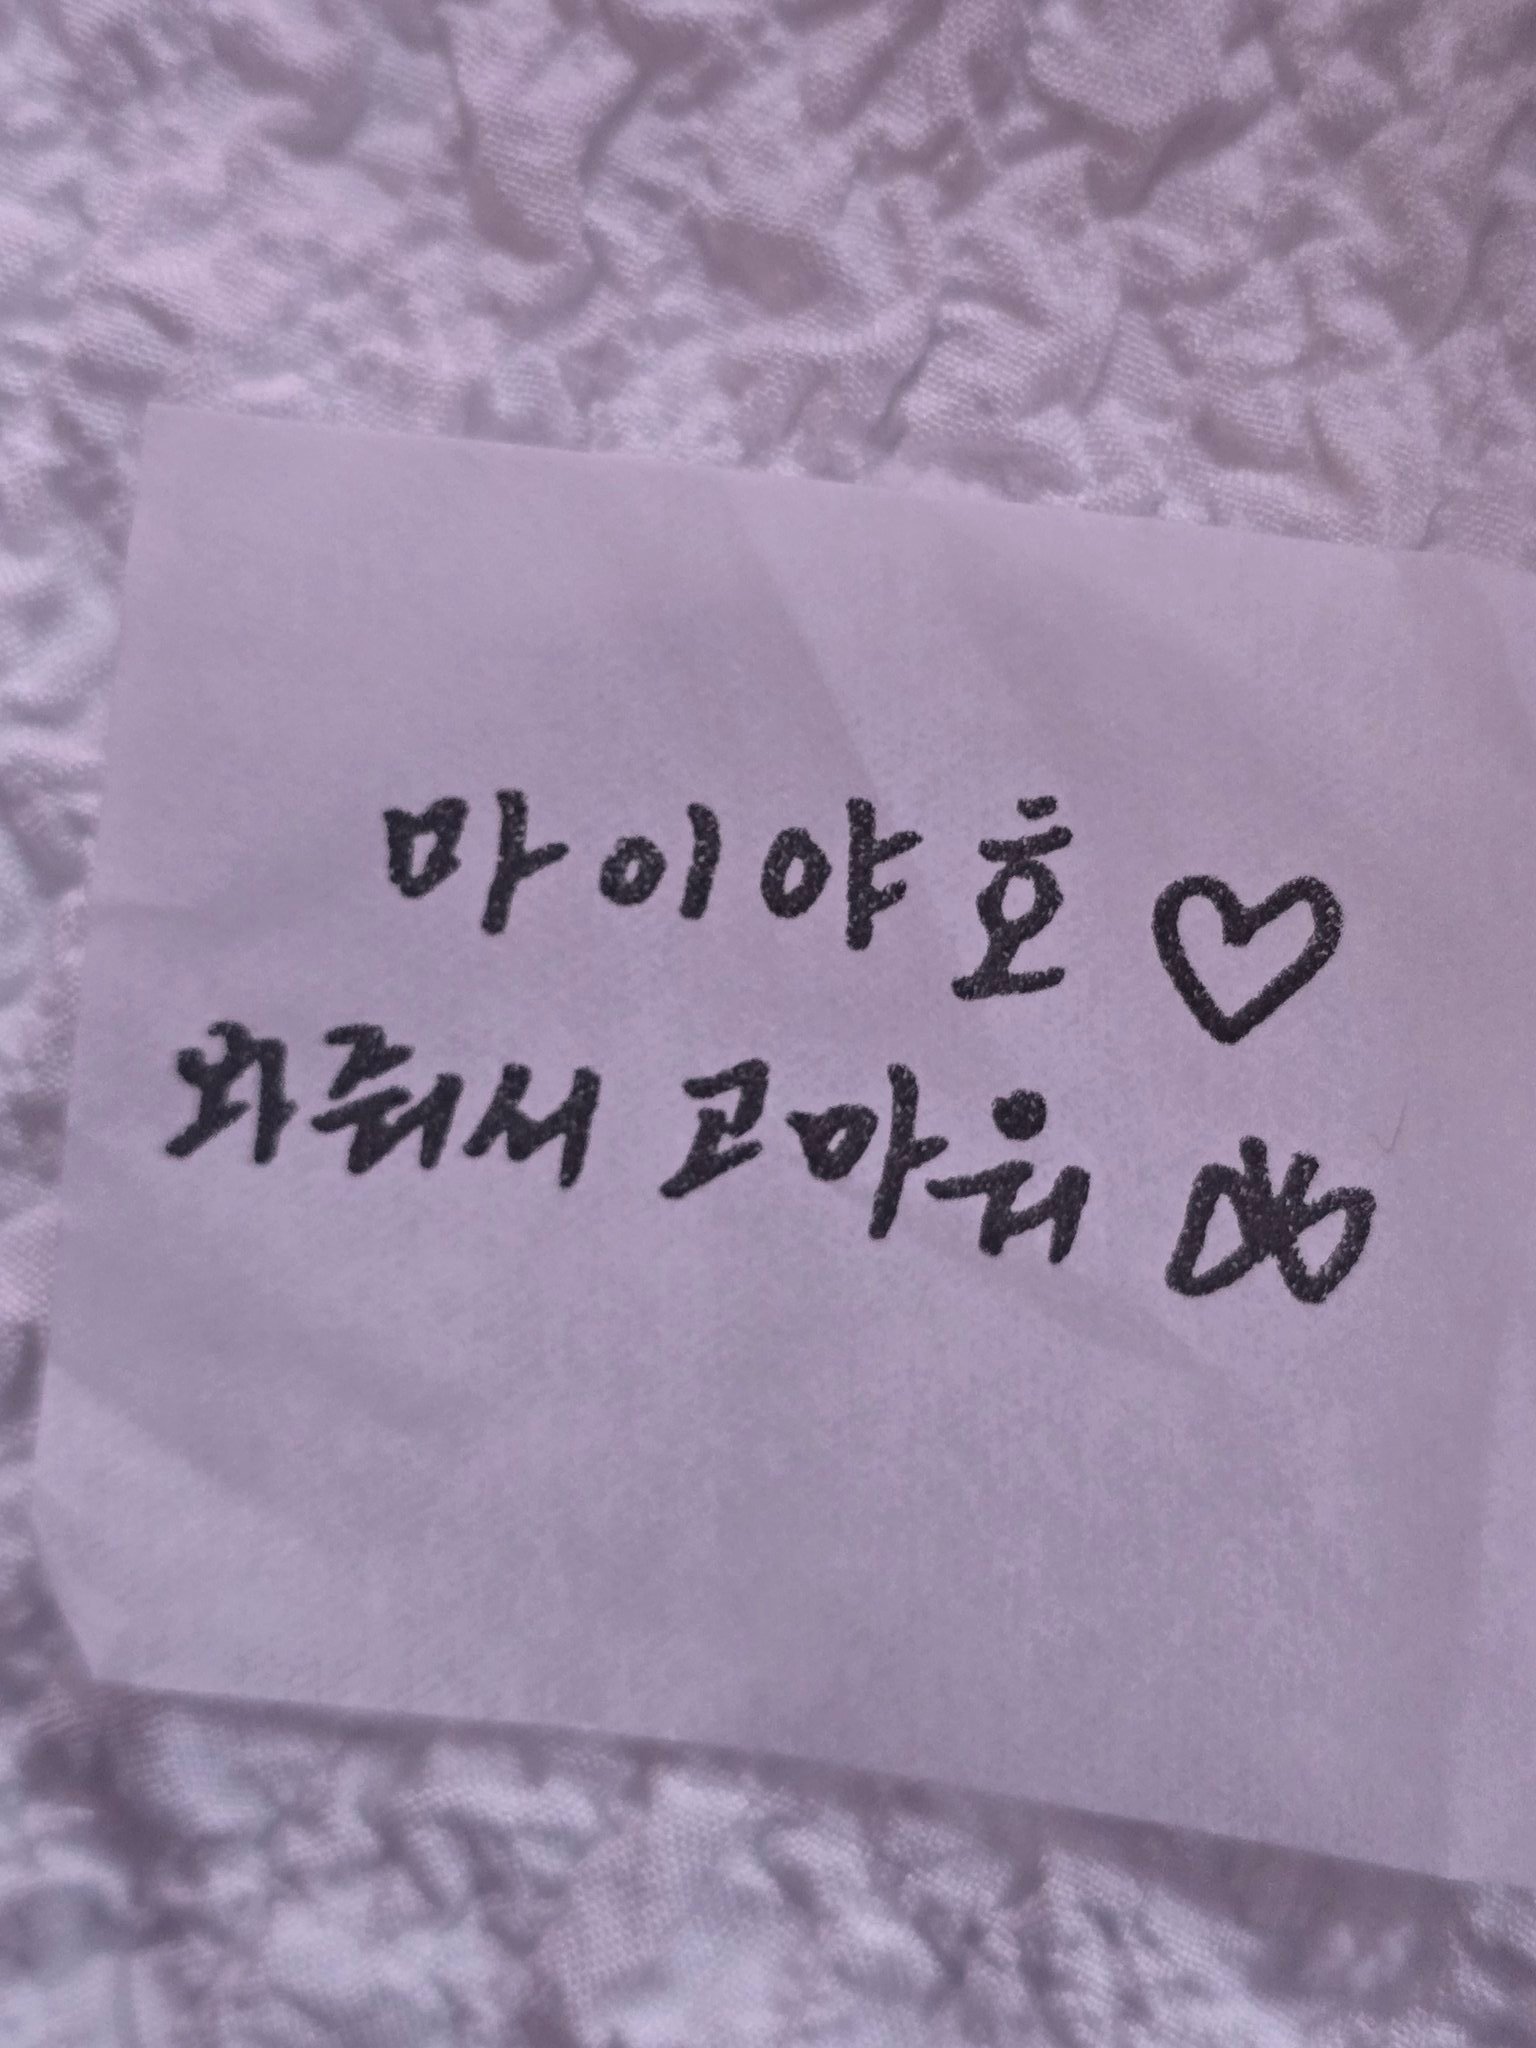 마이야호♡
와줘서 고마워